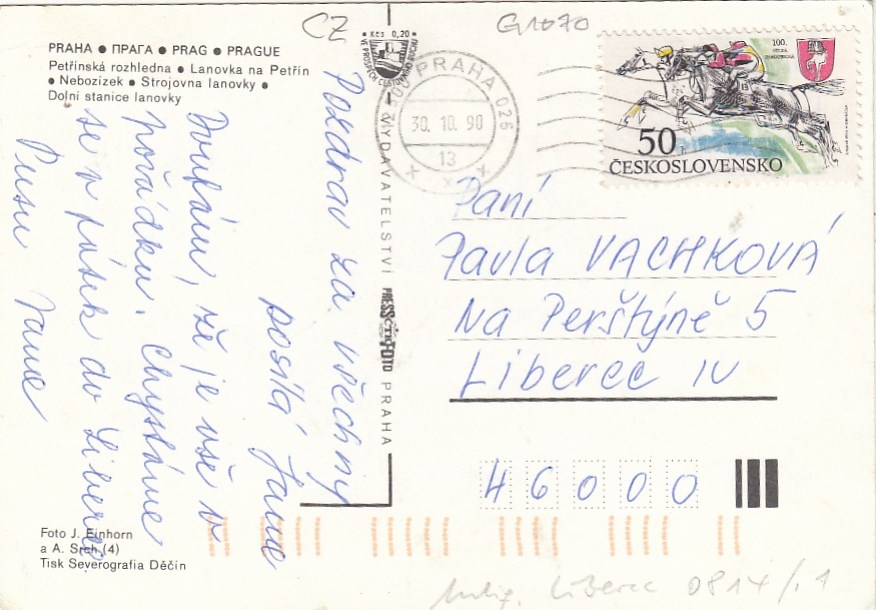 CZ
G1070
PRAHA ● ПРАГА ● PRAG ● PRAGUE
Petřínská rozhledna ● Lanovka na Petřín
● Nebozízek ● Strojovna lanovky ●
Dolní stanice lanovky
Kčs 0,20
VE PROSPĚCH
PRAHA 026
30. 10. 90
13
100.
50
ČESKOSLOVENSKO
Pozdrav za všechny
posílá Jana
Doufám, že je vše v
pořádku. Chystáme
se v pátek do Liberce.
Pusu Jana
VYDAVATELSTVÍ PRESSFOTO PRAHA
Paní
Pavla VACHKOVÁ
Na Perštýně 5
Liberec IV
46000
Foto J. Einhorn
a A. Srch (4)
Tisk Severografia Děčín
Liberec 0814/.1